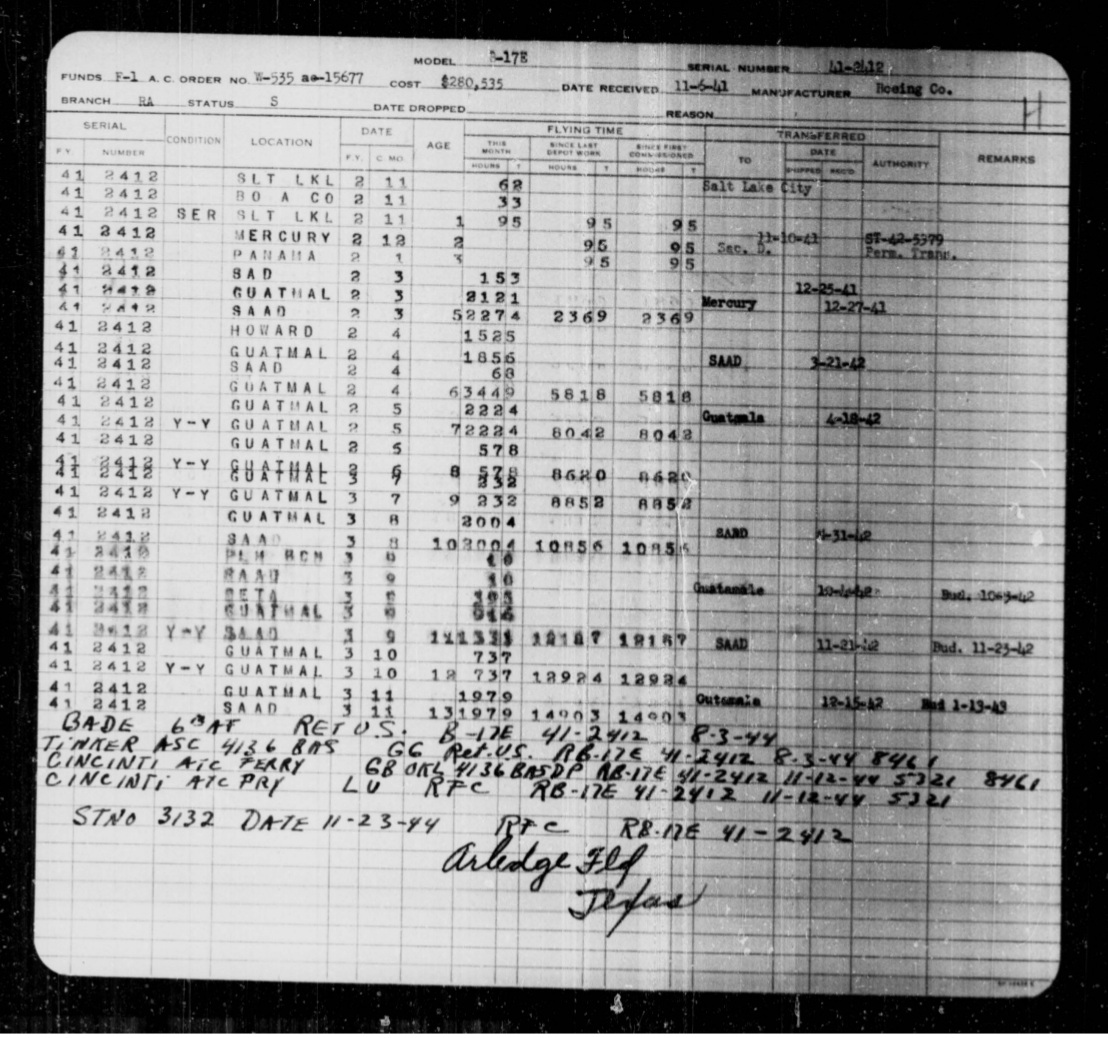 MODEL B-17E
SERIAL NUMBER 41-2412
FUNDS F-1 A. C. ORDER NO. W-535 ac-15677 COST $280,535 DATE RECEIVED 11-6-41 MANUFACTURER Boeing Co.
BRANCH RA STATUS S DATE DROPPED REASON
H
SERIAL CONDITION LOCATION DATE AGE FLYING TIME TRANSFERRED REMARKS
F.Y. NUMBER F.Y. C. MO. THIS MONTH SINCE LAST DEPOT WORK SINCE FIRST COMMISSIONED TO DATE AUTHORITY
HOURS T HOURS T HOURS T SHIPPED REC'D
41 2412 SLT LKL 2 11 62 Salt Lake City
41 2412 BO A CO 2 11 33
41 2412 SER SLT LKL 2 11 1 95 95 95
41 2412 MERCURY 2 12 2 95 95 Sec. D. 11-10-41 ST-42-5379
41 2412 PANAMA 2 1 3 95 95 Perm. Trans.
41 2412 SAD 2 3 153
41 2412 GUATMAL 2 3 2121 12-25-41
41 2412 SAAD 2 3 5 2274 2369 2369 Mercury 12-27-41
41 2412 HOWARD 2 4 1525
41 2412 GUATMAL 2 4 1856 SAAD 3-21-42
41 2412 SAAD 2 4 68
41 2412 GUATMAL 2 4 6 3449 5818 5818
41 2412 GUATMAL 2 5 2224 Guatemala 4-18-42
41 2412 Y-Y GUATMAL 2 5 7 2224 8042 8042
41 2412 GUATMAL 2 6 578
41 2412 Y-Y GUATMAL 2 6 8 578 8620 8620
41 2412 GUATMAL 3 7 232
41 2412 Y-Y GUATMAL 3 7 9 232 8852 8852
41 2412 GUATMAL 3 8 2004
41 2412 SAAD 3 8 10 2004 10856 10856 -31-42
41 2412 3 9 10
41 2412 SAAD 3 9 10
41 2412 3 9 Guatemala Bud. 10-5-42
41 2412 GUATMAL 3 9
41 2412 Y-Y SAAD 3 9 11 1331 12187 12187 SAAD 11-21-42 Bud. 11-25-42
41 2412 GUATMAL 3 10 737
41 2412 Y-Y GUATMAL 3 10 12 737 12924 12924
41 2412 GUATMAL 3 11 1979 Gutemala 12-15-42 Bud 1-13-43
41 2412 SAAD 3 11 13 1979 14903 14903
BADE 6th AF RET US. B-17E 41-2412 8-3-44
TINKER ASC 4136 BAS GG Ret.US. RB-17E 41-2412 8-3-44 8461
CINCINTI ATC FERRY GB OKL 4136 BASDP RB-17E 41-2412 11-12-44 5321 8461
CINCINTI ATC PRY LU RFC RB-17E 41-2412 11-12-44 5321
STNO 3132 DATE 11-23-44 RFC RB-17E 41-2412
Arledge Fld
Texas